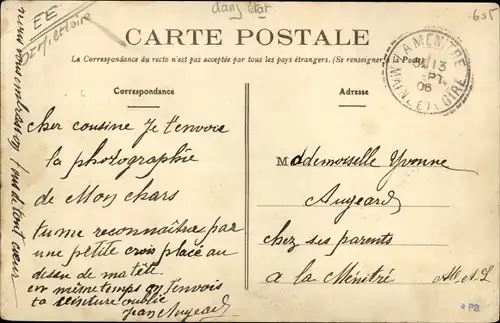 dans état
CARTE POSTALE
La Correspondance du recto n'est pas acceptée par tous les pays étrangers. (Se renseigner à la Poste)
LA MENITRÉ
13
SEPT.
06
MAINE ET LOIRE
Correspondance
cher cousine Je t'envoie
la photographie
de Mon chars
tu me reconnaître par
une petite crois placé au
desu de ma tête
en même temps on t'envois
ta ceinture oublié
Jean Augeard
nous vous embrassons tous de tout coeur
Adresse
Mademoiselle Yvonne
Augeard
chez ses parents
a la Ménitré M. et L
*PB